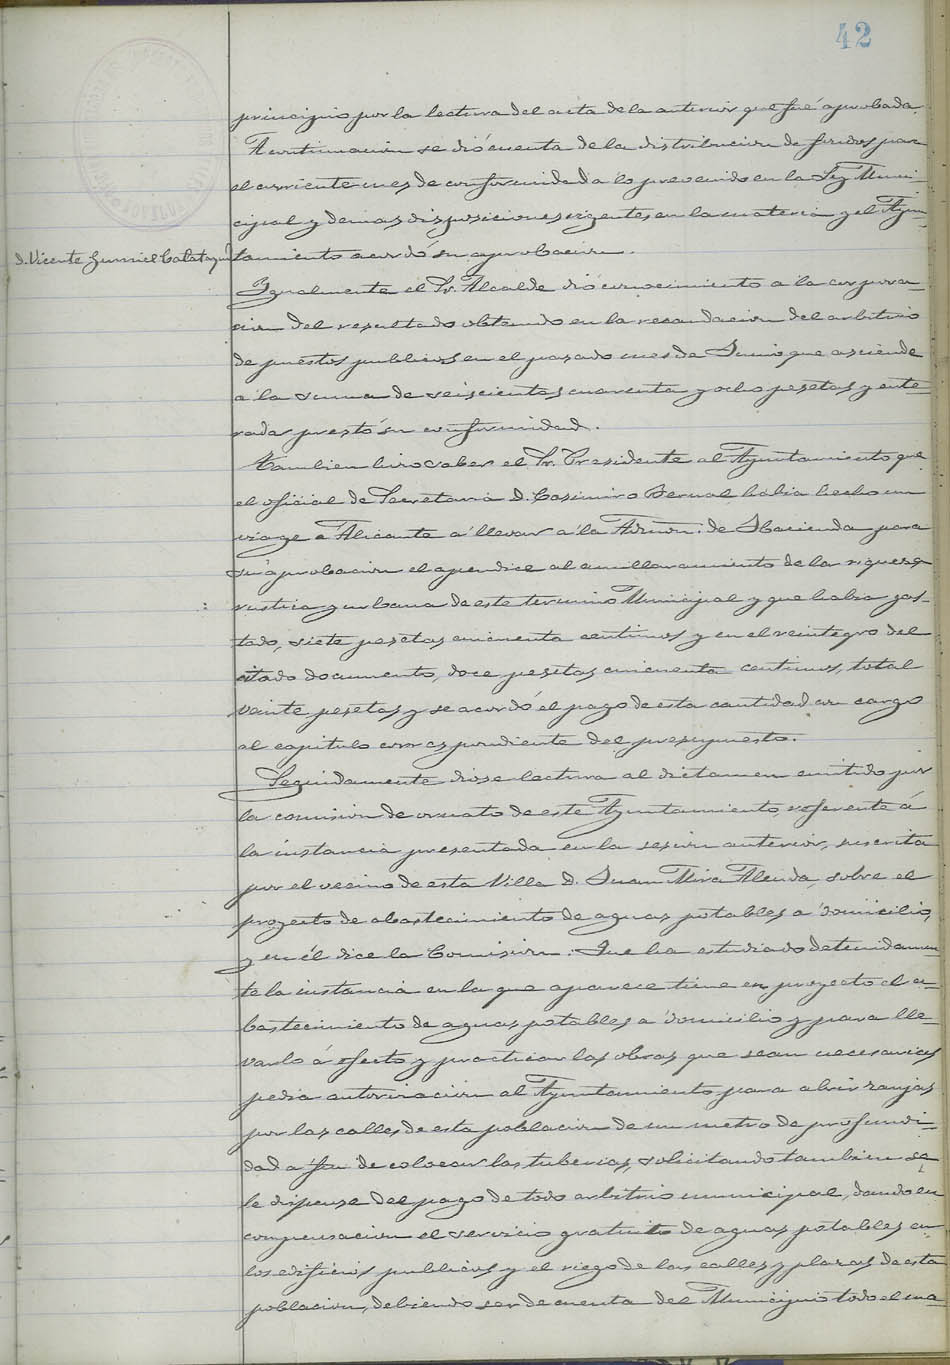 42
principio por la lectura del acta de la anterior que fué aprobada.
A continuacion se dió cuenta de la distribucion de fondos para
el corriente mes de conformidad a lo prevenido en la Ley Muni-
cipal y demas disposiciones vigentes en la materia y el Ayun-
D. Vicente Gumiel Calatayud
tamiento acordó su aprobacion.
Igualmente el Sr. Alcalde dió conocimiento a la corpora-
cion del resultado obtenido en la recaudacion del arbitrio
de puestos publicos en el pasado mes de Junio que asciende
a la suma de seiscientas cuarenta y ocho pesetas y ente-
rada prestó su conformidad.
Tambien hizo saber el Sr. Presidente al Ayuntamiento que
el oficial de Secretaria D. Casimiro Bernal habia hecho un
viage á Alicante a llevar a la Admon. de Hacienda para
su aprobacion el apendice al amillaramiento de la riqueza
rustica y urbana de este termino Municipal y que habia gas-
tado, siete pesetas cincuenta centimos y en el reintegro del
citado documento, doce pesetas cincuenta centimos, total
veinte pesetas y se acordó el pago de esta cantidad con cargo
al capitulo correspondiente del presupuesto.
Seguidamente diose lectura al dictamen emitido por
la comision de ornato de este Ayuntamiento, referente á
la instancia presentada en la sesion anterior, suscrita
por el vecino de esta Villa D. Juan Mira Alenda, sobre el
proyecto de abastecimiento de aguas potables a domicilio,
y en él dice la Comision: Que ha estudiado detenidamen-
te la instancia en la que aparece tiene en proyecto el a-
bastecimiento de aguas potables a domicilio y para lle-
varlo á efecto y practicar las obras que sean necesarias
pedia autorizacion al Ayuntamiento para abrir zanjas
por las calles de esta poblacion de un metro de profundi-
dad a fin de colocar las tuberias, solicitando tambien se
le dispense del pago de todo arbitrio municipal, dando en
compensacion el servicio gratuito de aguas potables en
los edificios publicos y el riego de las calles y plazas de esta
poblacion, debiendo ser de cuenta del Municipio todo el ma-